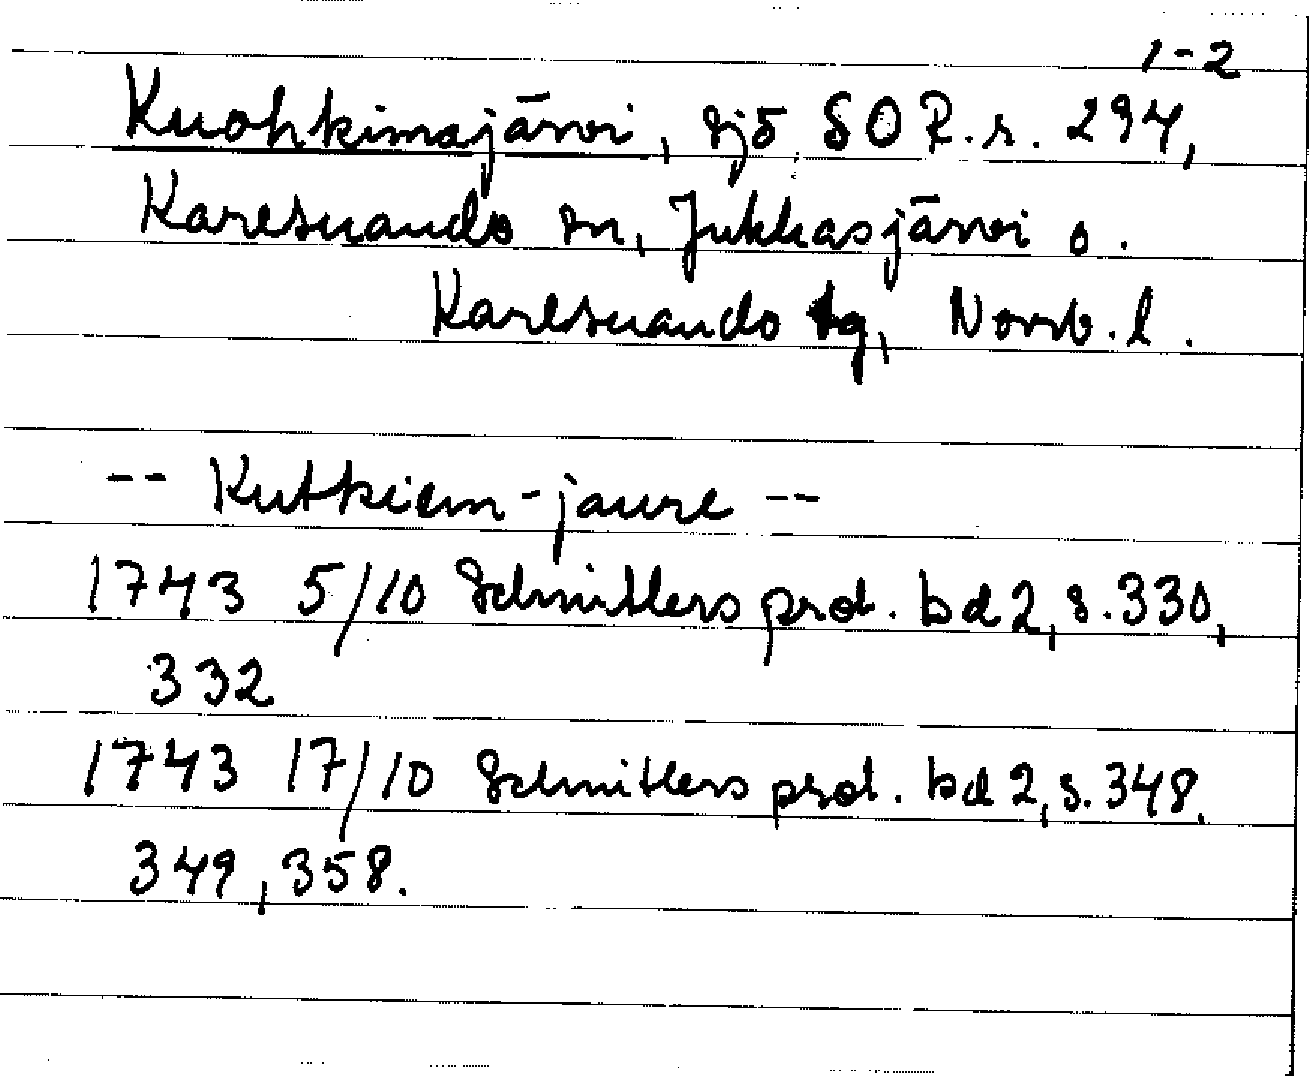 1-2
Kuohkimajärvi, sjö SOR.r. 294,
Karesuando sn, Jukkasjärvi o.
Karesuando tg, Norrb. l.
-- Kutkiem-jaure --
1743 5/10 Schnitlers prot. bd 2, s. 330,
332
1743 17/10 Schnitlers prot. bd 2, s. 348,
349, 358.